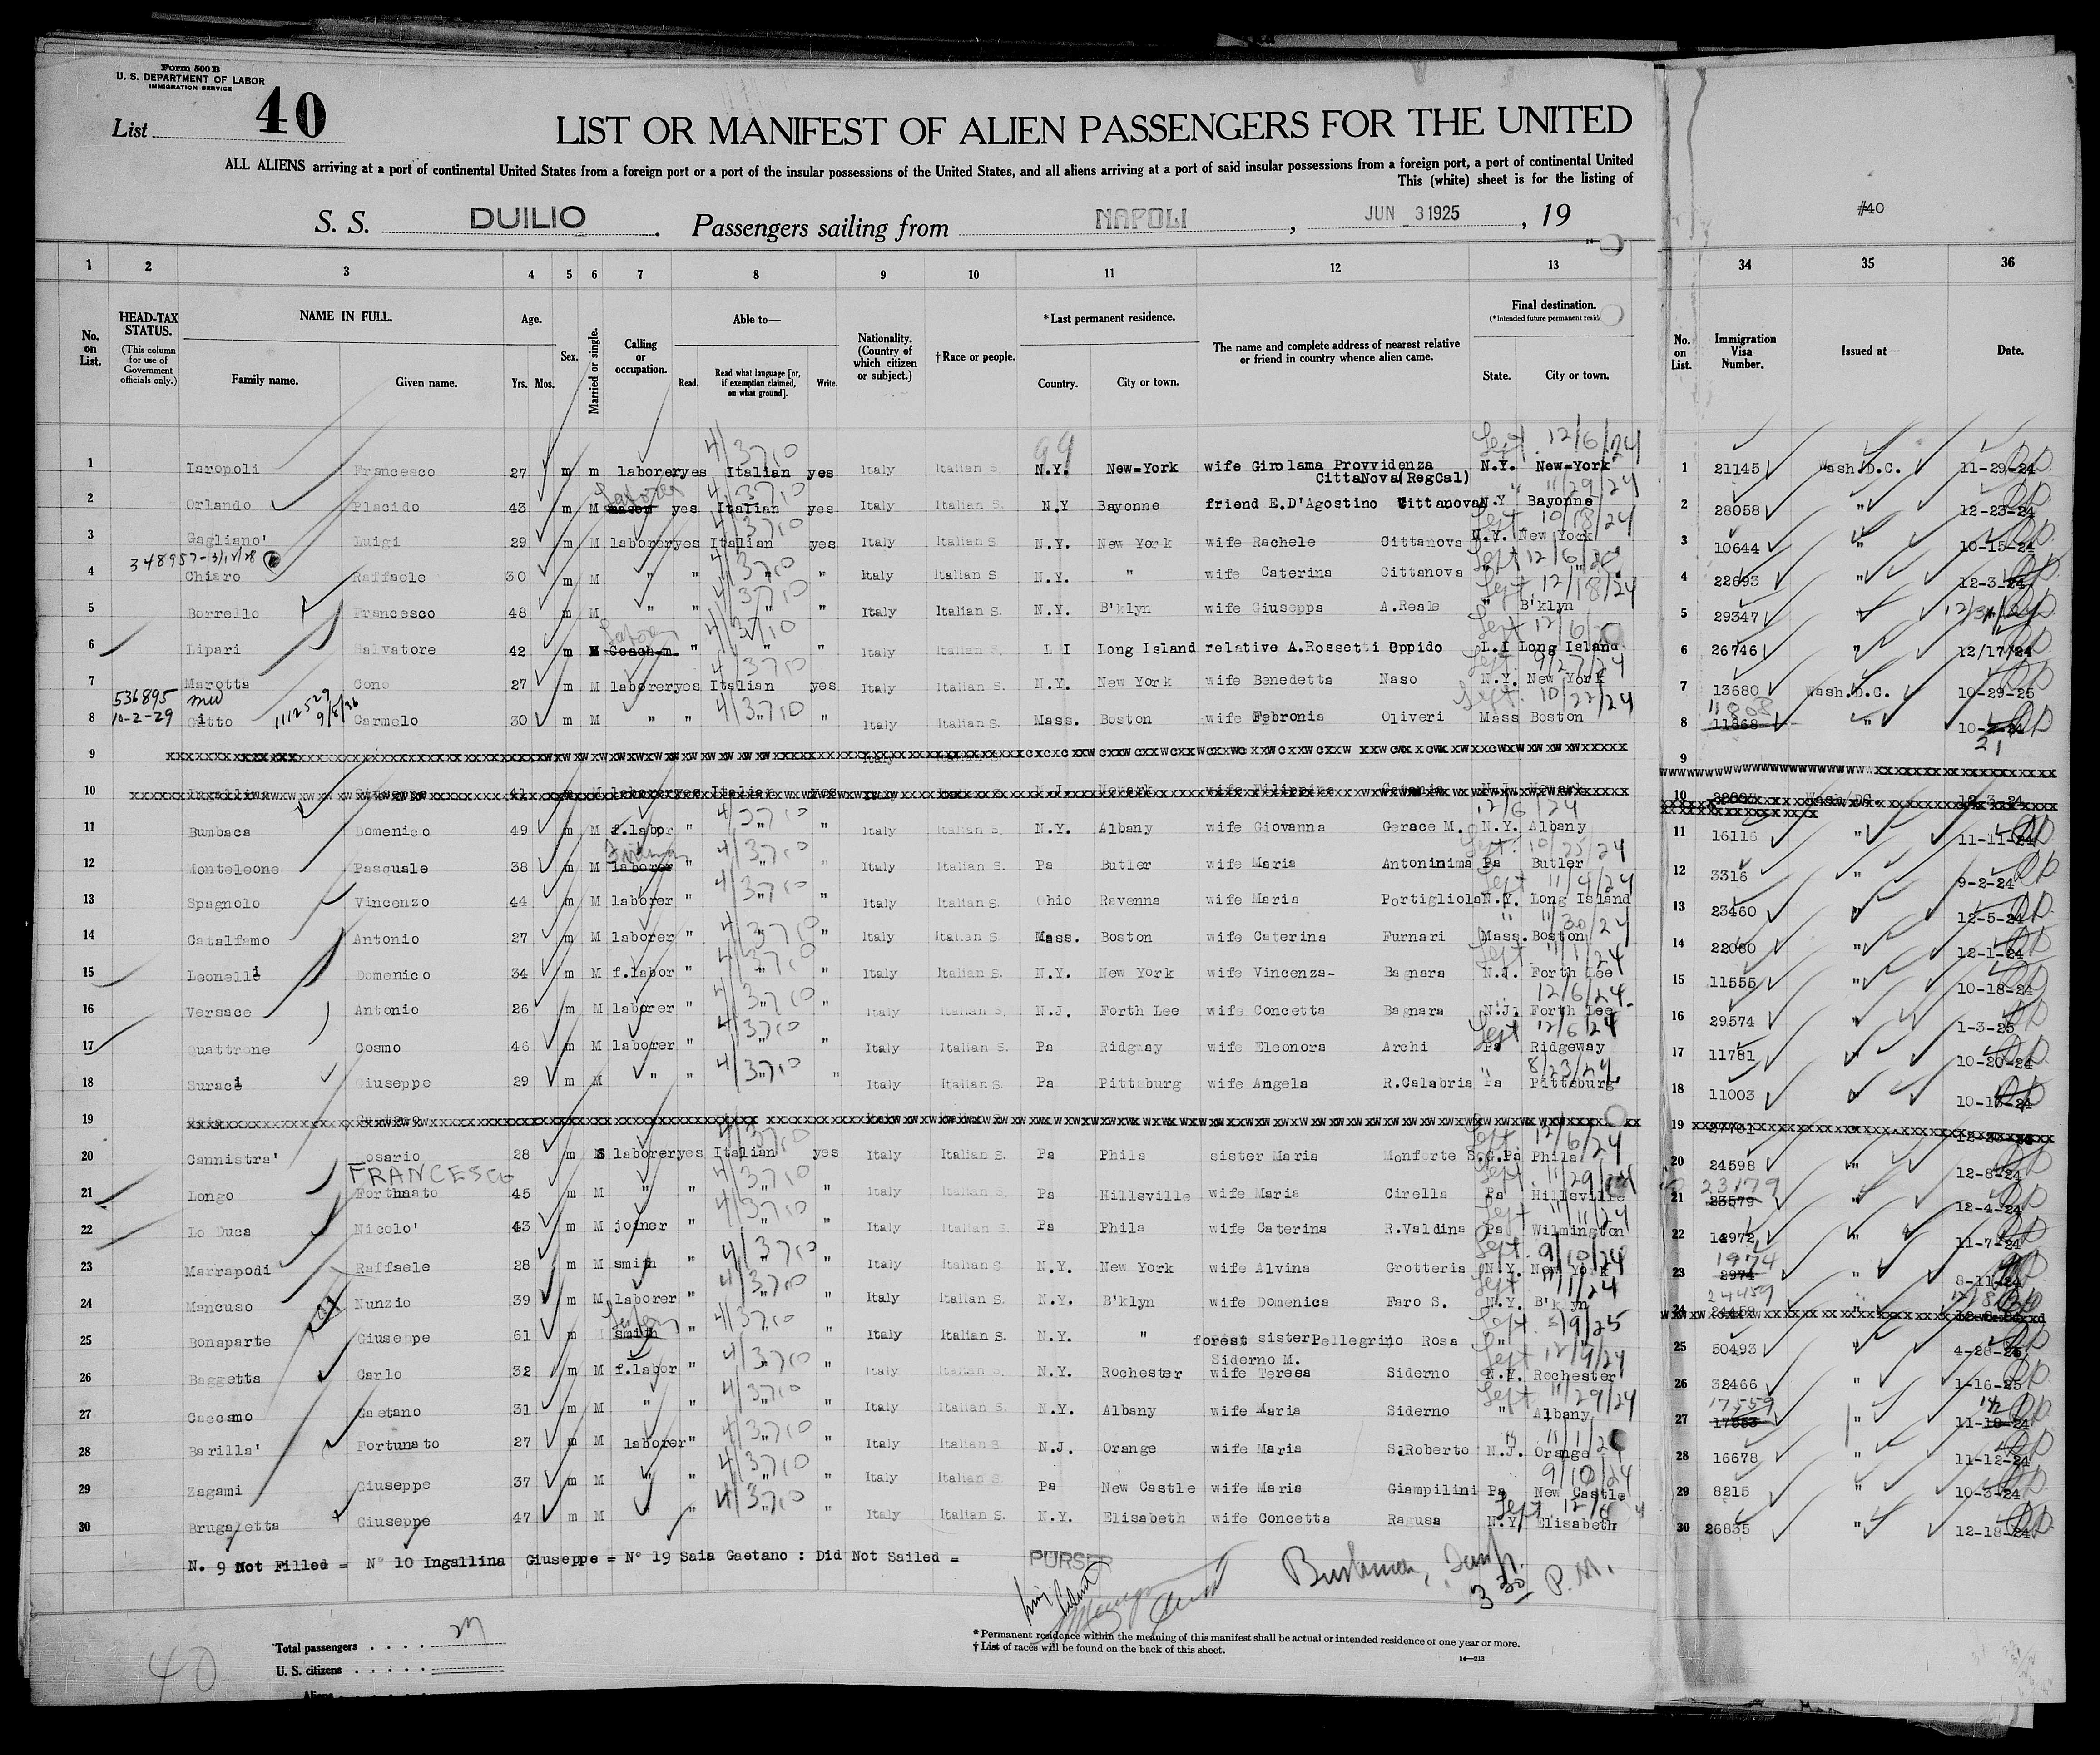 Form 500 B
U. S. DEPARTMENT OF LABOR
IMMIGRATION SERVICE
List 40
LIST OR MANIFEST OF ALIEN PASSENGERS FOR THE UNITED
ALL ALIENS arriving at a port of continental United States from a foreign port or a port of the insular possessions of the United States, and all aliens arriving at a port of said insular possessions from a foreign port, a port of continental United
This (white) sheet is for the listing of
S. S. DUILIO. Passengers sailing from NAPOLI, JUN 3 1925, 19
#40
1 2 3 4 5 6 7 8 9 10 11 12 13 34 35 36
No. on List. HEAD-TAX STATUS. (This column for use of Government officials only.) NAME IN FULL. Family name. Given name. Age. Yrs. Mos. Sex. Married or single. Calling or occupation. Able to— Read. Read what language [or, if exemption claimed, on what ground]. Write. Nationality. (Country of which citizen or subject.) †Race or people. *Last permanent residence. Country. City or town. The name and complete address of nearest relative or friend in country whence alien came. Final destination. (*Intended future permanent resid State. City or town. No. on List. Immigration Visa Number. Issued at— Date.
1 Isropoli Francesco 27 m m laborer yes Italian yes Italy Italian S. N.Y. New=York wife Girolama Provvidenza CittaNova(RegCal) N.Y. New=York Sept. 12/6/24 1 21145 Wash.D.C. 11-29-24
2 Orlando Placido 43 m M mason laborer yes Italian yes Italy Italian S. N.Y Bayonne friend E.D'Agostino Cittanova N.Y Bayonne " 11/29/24 2 28058 " 12-23-24
3 Gagliano' Luigi 29 m M laborer yes Italian yes Italy Italian S N.Y. New York wife Rachele Cittanova N.Y. New York Sept 10/18/24 3 10644 " 10-15-24
4 348957-3/12/28 Chiaro Raffaele 30 m M " " " " Italy Italian S N.Y. " wife Caterina Cittanova " " Sept 12/6/24 4 22693 " 12-3-24
5 Borrello Francesco 48 m M " " " " Italy Italian S. N.Y. B'klyn wife Giuseppa A.Reale " B'klyn Sept. 12/18/24 5 29347 "
6 Lipari Salvatore 42 m M Coach.m. " " " Italy Italian S. L I Long Island relative A.Rossetti Oppido L.I Long Island Sept 12/6/ 6 26746 " 12/17/24
7 Marotta Cono 27 m M laborer yes Italian yes Italy Italian S. N.Y. New York wife Benedetta Naso N.Y. New York Sept. 9/27/24 7 13680 Wash.D.C. 10-29-25
8 536895 10-2-29 Citto 1112529 9/8/36 Carmelo 30 m M " " " " Italy Italian S. Mass. Boston wife Febronia Oliveri Mass Boston Sept. 10/22/24 8 11868 11808 " 10-2-24 21
9 9
10 Giuseppe 41 m M laborer yes Italian yes Italy N.J. Newark wife Filippina Catania N.J. Newark 10 Wash.DC. 12-3-24
11 Bumbaca Domenico 49 m M f.labor " " " Italy Italian S. N.Y. Albany wife Giovanna Gerace M. N.Y. Albany 12/6/24 11 16116 " 11-11-24
12 Monteleone Pasquale 38 m M laborer " " " Italy Italian S. Pa Butler wife Maria Antonimima Pa Butler Sept. 10/25/24 12 3316 " 9-2-24
13 Spagnolo Vincenzo 44 m M laborer " " " Italy Italian S. Ohio Ravenna wife Maria Portigliola N.Y. Long Island Sept 11/4/24 13 23460 " 12-5-24
14 Catalfamo Antonio 27 m M laborer " " " Italy Italian S. Mass. Boston wife Caterina Furnari Mass. Boston " 11/30/24 14 22080 " 12-1-24
15 Leonelli Domenico 34 m M f.labor " " " Italy Italian S. N.Y. New York wife Vincenza- Bagnara N.J. Forth Lee Sept 11/1/24 15 11555 " 10-18-24
16 Versace Antonio 26 m M laborer " " " Italy Italian S. N.J. Forth Lee wife Concetta Bagnara N.J. Forth Lee 12/6/24 16 29574 " 1-3-25
17 Quattrone Cosmo 46 m M laborer " " " Italy Italian S. Pa Ridgway wife Eleonora Archi Pa Ridgeway Sept 12/6/24 17 11781 " 10-20-24
18 Suraci Giuseppe 29 m M " " " " Italy Italian S. Pa Pittsburg wife Angela R.Calabria Pa Pittsburg " 8/23/24 18 11003 "
19 Saia Gaetano Italy Italian S. 19 27701 "
20 Cannistra' Rosario 28 m S laborer yes Italian yes Italy Italian S. Pa Phila sister Maria Monforte S.G. Pa Phila Sept 12/6/24 20 24598 " 12-8-24
21 Longo FRANCESCO Fortunato 45 m M " " " " Italy Italian S. Pa Hillsville wife Maria Cirella Pa Hillsville Sept. 11/29/24 21 23579 23179 " 12-4-24
22 Lo Duca Nicolo' 43 m M joiner " " " Italy Italian S. Pa Phila wife Caterina R.Valdina Pa Wilmington Sept 11/11/24 22 18972 " 11-7-24
23 Marrapodi Raffaele 28 m M smith " " " Italy Italian S. N.Y. New York wife Alvina Grotteria N.Y. New York Sept. 9/10/24 23 2974 1974 " 8-11-24
24 Mancuso Nunzio 39 m M laborer " " " Italy Italian S. N.Y. B'klyn wife Domenica Faro S. N.Y. B'klyn Sept 11/1/24 24 24459 "
25 Bonaparte Giuseppe 61 m smith " " " Italy Italian S. N.Y. " forest sister Pellegrino Rosa Siderno M. " " Sept. 5/9/25 25 50493 " 4-28-25
26 Baggetta Carlo 32 m M f.labor " " " Italy Italian S. N.Y. Rochester wife Teresa Siderno N.Y. Rochester Sept 12/9/24 26 32466 " 1-16-25
27 Caccamo Gaetano 31 m M " " " " Italy Italian S. N.Y. Albany wife Maria Siderno " Albany Sept 11/29/24 27 17559 " 11-18-24
28 Barilla' Fortunato 27 m M laborer " " " Italy Italian S. N.J. Orange wife Maria S.Roberto N.J. Orange " 11/1/24 28 16678 " 11-12-24
29 Zagami Giuseppe 37 m M " " " " Italy Italian S. Pa New Castle wife Maria Giampilini Pa New Castle 9/10/24 29 8215 " 10-3-24
30 Brugaletta Giuseppe 47 m M " " " " Italy Italian S. N.Y. Elisabeth wife Concetta Ragusa N.Y. Elisabeth Sept 12/6 4 30 26835 " 12-18-24
N. 9 Not Filled = N° 10 Ingallina Giuseppe = N° 19 Saia Gaetano : Did Not Sailed =
PURSER
3 30 P.M.
Total passengers . . . . 27
U. S. citizens . . . . .
Aliens
40
* Permanent residence within the meaning of this manifest shall be actual or intended residence of one year or more.
† List of races will be found on the back of this sheet.
14—213